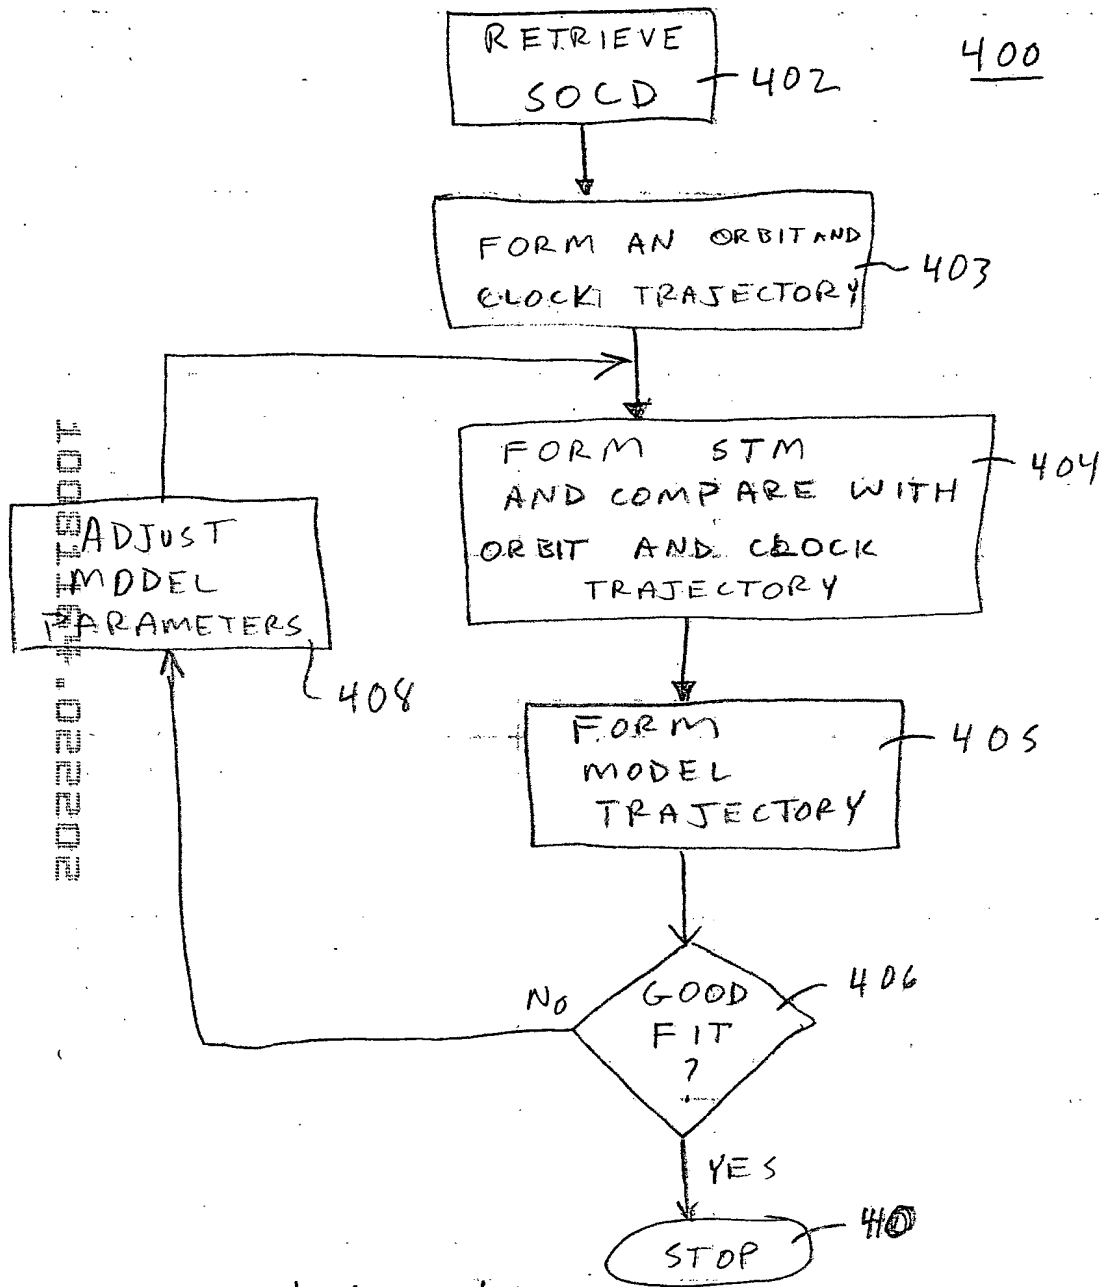 400
RETRIEVE
SOCD
402
FORM AN ORBIT AND
CLOCK TRAJECTORY
403
FORM STM
AND COMPARE WITH
ORBIT AND CLOCK
TRAJECTORY
404
ADJUST
MODEL
PARAMETERS
408
FORM
MODEL
TRAJECTORY
405
GOOD
FIT
?
406
NO
YES
STOP
410